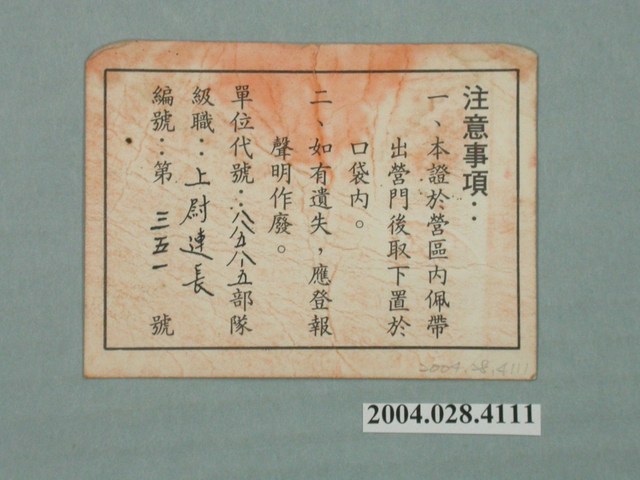 注意事項：
一、本證於營區內佩帶
出營門後取下置於
口袋內。
二、如有遺失，應登報
聲明作廢。
單位代號：八九八五部隊
級職：上尉連長
編號：第 三五一 號
2004.28.4111
2004.028.4111